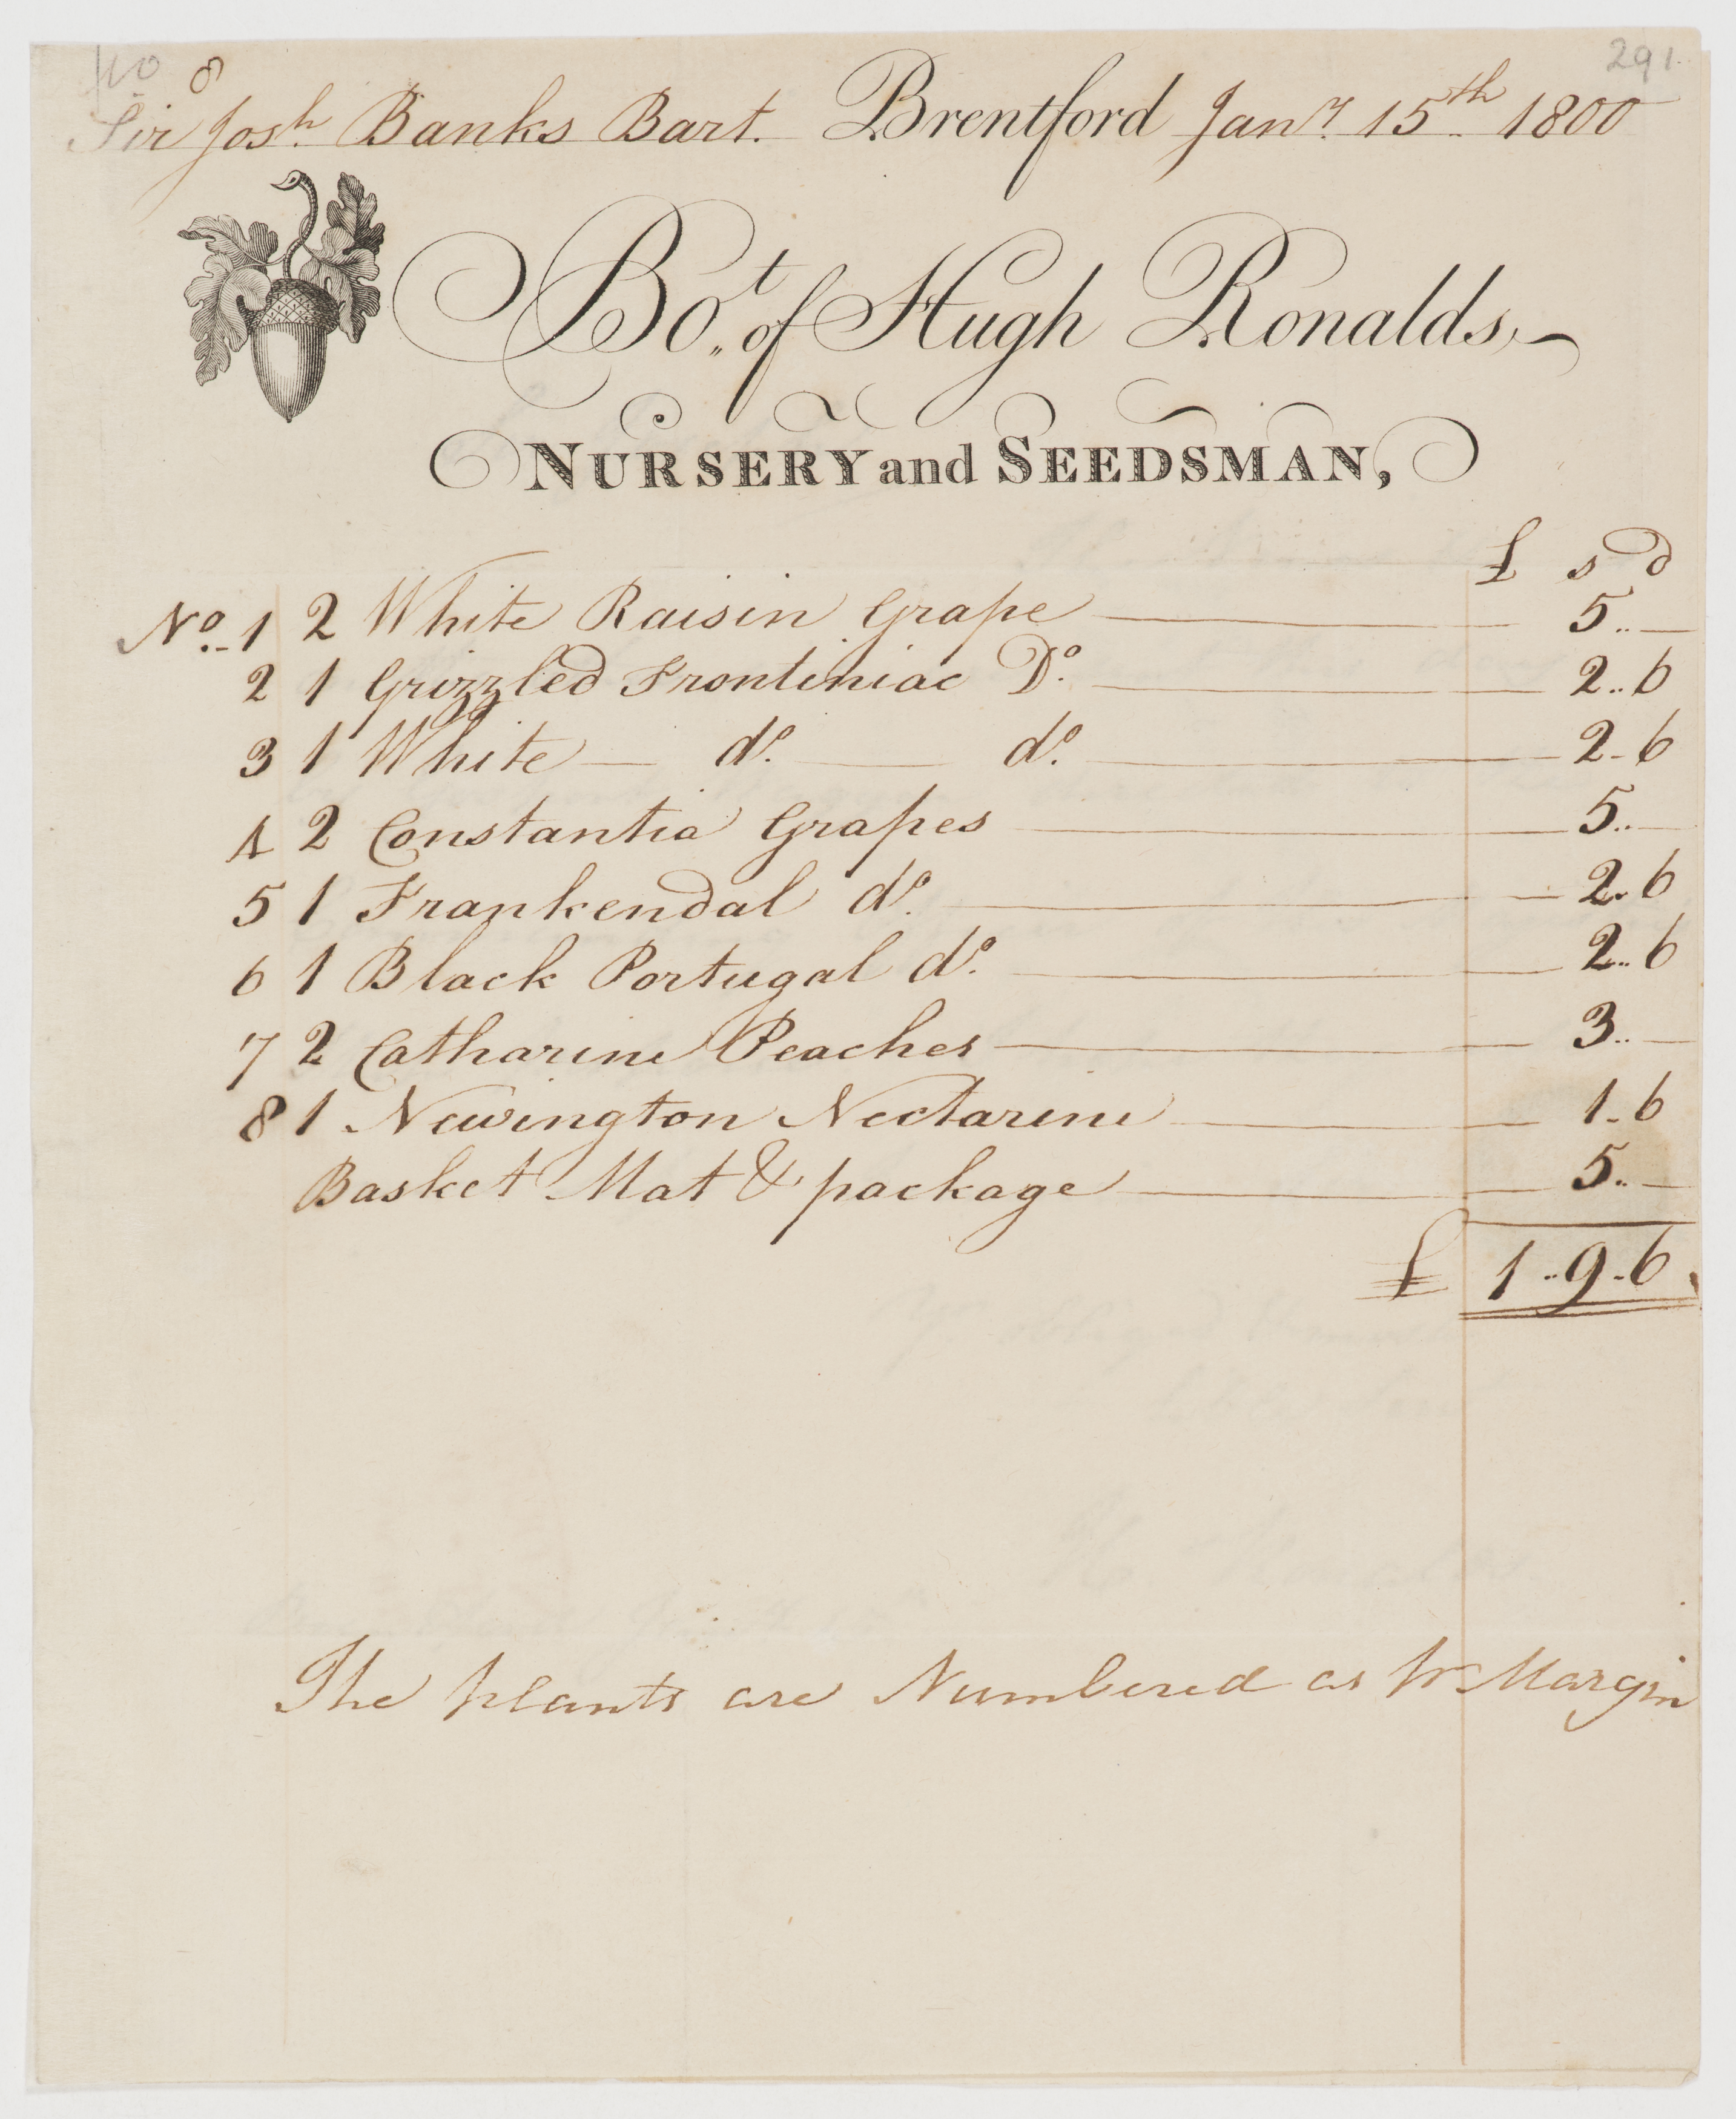 8 291.
Sir Josh. Banks Bart. Brentford Jany. 15th 1800
Bot. of Hugh Ronalds,
NURSERY and SEEDSMAN,
£ s d
No. 1 2 White Raisin Grape 5..—
2 1 Grizzled Frontiniac Do. 2..6
3 1 White — do. — do. 2-6
4 2 Constantia Grapes 5..—
5 1 Frankendal do. 2..6
6 1 Black Portugal do. 2..6
7 2 Catharine Peaches 3..—
8 1 Newington Nectarine 1-6
Basket Mat & package 5..—
£ 1..9-6
The plants are Numbered as pr Margin